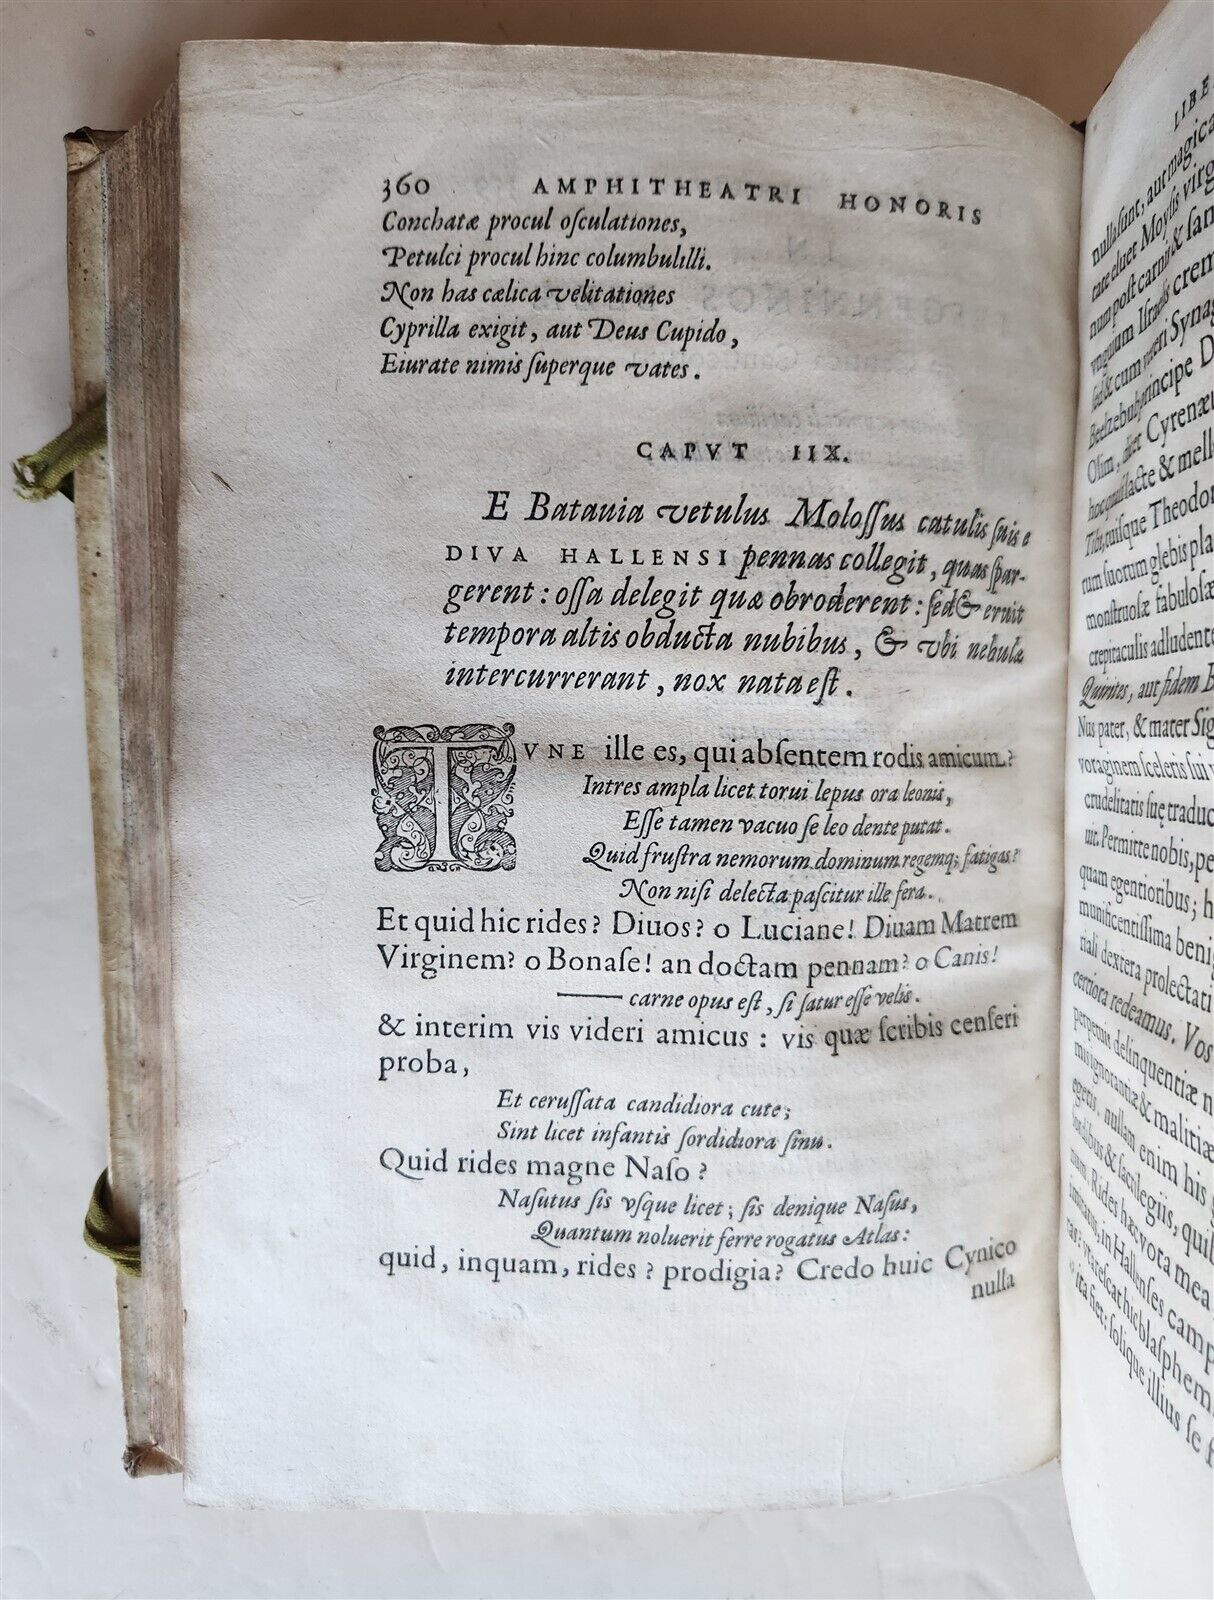 360 AMPHITHEATRI HONORIS
Conchatæ procul oſculationes,
Petulci procul hinc columbulilli.
Non has cælica velitationes
Cyprilla exigit, aut Deus Cupido,
Eiurate nimis ſuperque vates.
CAPVT IIX.
E Batauia vetulus Moloſſus catulis ſuis e
DIVA HALLENSI pennas collegit, quas ſpar-
gerent: oſſa delegit quæ obroderent: ſed & eruit
tempora altis obducta nubibus, & vbi nebulæ
intercurrerant, nox nata eſt.
TVNE ille es, qui abſentem rodis amicum?
Intres ampla licet torui lepus ora leonis,
Eſſe tamen vacuo ſe leo dente putat.
Quid fruſtra nemorum dominum regemq; fatigas?
Non niſi delecta paſcitur ille fera.
Et quid hic rides? Diuos? o Luciane! Diuam Matrem
Virginem? o Bonaſe! an doctam pennam? o Canis!
—— carne opus eſt, ſi ſatur eſſe velis.
& interim vis videri amicus: vis quæ ſcribis cenſeri
proba,
Et ceruſſata candidiora cute;
Sint licet infantis ſordidiora ſinu.
Quid rides magne Naſo?
Naſutus ſis vſque licet; ſis denique Naſus,
Quantum noluerit ferre rogatus Atlas:
quid, inquam, rides? prodigia? Credo huic Cynico
nulla
LIBE
nulla ſunt, aut magica
tare eluet Moyſis virg
num poſt carnis & ſan
vnguum Iſraelis crem
ſed & cum veteri Synag
Beelzebub principe D
Oſim, diet Cyrenæ
hoc quaſi lacte & melle
Tibi, tuiſque Theodor
rum ſuorum glebis pla
monſtruoſæ fabuloſæ
crepitaculis adludente
Quirites, aut fidem
Nus pater, & mater Sig
voraginem ſceleris ſui
crudelitatis ſuę traduc
uit. Permitte nobis, pe
quam egentioribus; h
munificentiſſima benig
riali dextera prolectati
certiora redeamus. Vos
perpemis delinquentiæ n
mi ignorantiæ & malitiæ
egetis. nullam enim his
ſordibus & ſacrilegiis, quil
num. Rides hæc vota mea
imitans, in Hallenſes camp
ras? vt areſcat hic blaſphem
ita fiet; ſolique illius ſe f